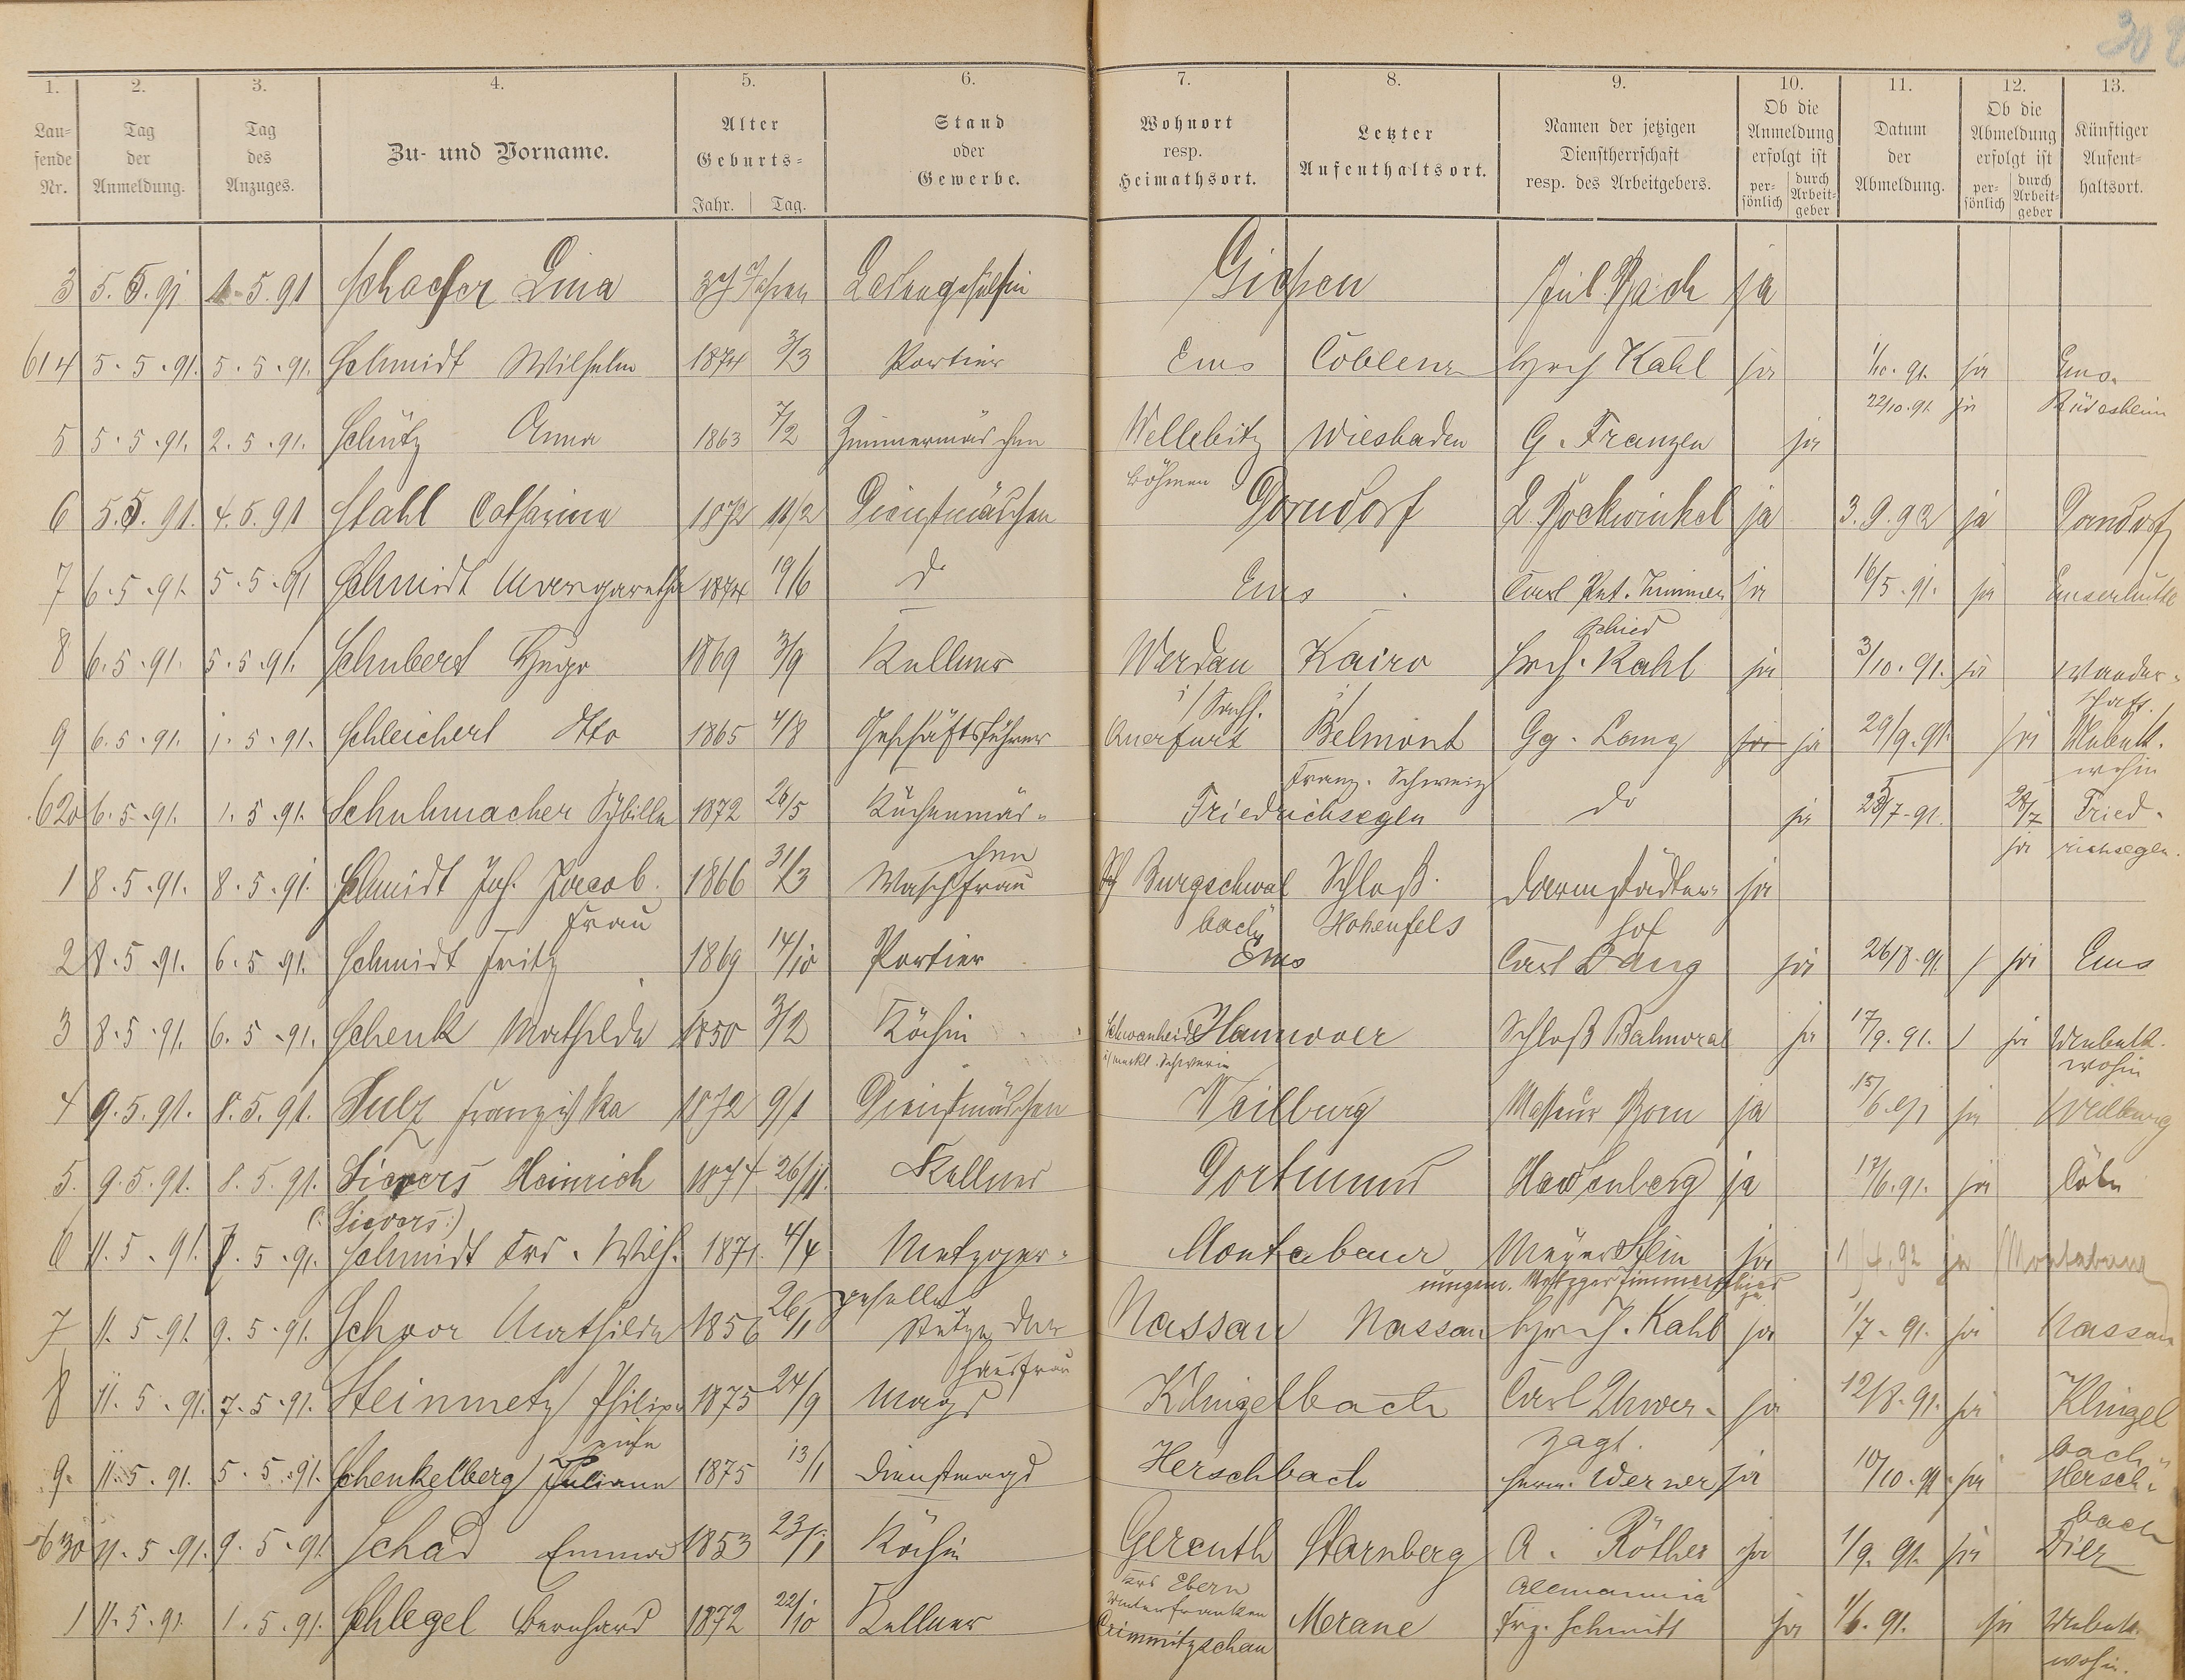 308
1. 2. 3. 4. 5. 6. 7. 8. 9. 10. 11. 12. 13.
Laufende Nr. | Tag der Anmeldung. | Tag des Anzuges. | Zu- und Vorname. | Alter Geburts- Jahr. Tag. | Stand oder Gewerbe. | Wohnort resp. Heimathsort. | Letzter Aufenthaltsort. | Namen der jetzigen Dienstherrschaft resp. des Arbeitgebers. | Ob die Anmeldung erfolgt ist persönlich durch Arbeitgeber | Datum der Abmeldung. | Ob die Abmeldung erfolgt ist persönlich durch Arbeitgeber | Künftiger Aufenthaltsort.
3 5.5.91 1.5.91 Schaefer Lina 37 Jahren Ladengehülfin Gießen Jul. Bach ja
614 5.5.91. 5.5.91. Schmidt Wilhelm 1874 3/3 Portier Ems Coblenz Hrch Kahl ja 1/10.91. ja Ems.
5 5.5.91. 2.5.91. Schütz Anna 1863 7/2 Zimmermädchen Wellebitz Böhmen Wiesbaden G. Franzen ja 22/10.91 ja Rüdesheim
6 5.5.91. 4.5.91 Stahl Catharina 1872 11/2 Dienstmädchen Dorndorf L. Bockwinkel ja 3.9.92 ja Dorndorf
7 6.5.91. 5.5.91 Schmidt Margaretha 1874 19/6 do Ems Carl Pet. Zimmerschied ja 16/5.91. ja Emserhütte
8 6.5.91. 5.5.91. Schubert Hugo 1869 3/9 Kellner Werdau i/Sachs. Kairo Hrch. Kahl ja 3/10.91. ja Wanderschaft.
9 6.5.91. 1.5.91. Schleichert Otto 1865 4/8 Geschäftsführer Querfurt Belmont Franz. Schweiz Gg. Lang ja ja 29/9.91. ja Unbek. wohin
620 6.5.91. 1.5.91. Schuhmacher Sybilla 1872 26/5 Küchenmädchen Friedrichsegen do ja 28/7.91. 28/7 ja Friedrichsegen.
1 8.5.91. 8.5.91. Schmidt Joh. Jacob. Frau 1866 31/3 Waschfrau Burgschwalbach Schloß Hohenfels Darmstädterhof ja
2 8.5.91. 6.5.91. Schmidt Fritz 1869 14/10 Portier Ems Carl Lang ja 26/8.91. / ja Ems
3 8.5.91. 6.5.91. Schenk Mathilde 1850 3/2 Köchin Schwanheide i/meckl. Schwerin Hannover Schloß Balmoral ja 17/9.91. / ja Unbek. wohin
4 9.5.91. 8.5.91. Sulz Franziska 1872 9/1 Dienstmädchen Weilburg Masseur Born ja 15/6.91 ja Weilburg
5. 9.5.91. 8.5.91. Sievers Heinrich (: Sievers :) 1874 26/11. Kellner Dortmund Hardenberg ja 17/6.91. ja Cöln
6 11.5.91. 7.5.91. Schmidt Frd. Wilh. 1871. 4/4 Metzgergeselle Montabaur Meyer Stein ja 1/4.92 ja Montabaur
umgem. Metzger Zimmerschied
7 11.5.91. 9.5.91. Schoor Mathilda 1856 26/11 Stütze der Hausfrau Nassau Nassau Hrch J. Kahl ja 1/7.91. ja Nassau
8 11.5.91. 7.5.91. Steinmetz Philippine 1875 24/9 Magd Klingelbach Carl Unverzagt. ja 12/8.91. ja Klingelbach
9. 11.5.91. 5.5.91. Schenkelberg Juliane 1875 13/1 Dienstmagd Herschbach Herm. Werner ja 10/10.91 ja Herschbach
630 11.5.91. 9.5.91. Schad Emma 1853 23/1 Köchin Gereuth Krs Ebern Unterfranken Starnberg A. Röther Alemannia ja 1/9.91. ja Diez
1 11.5.91. 1.5.91. Schlegel Bernhard 1872 22/10 Kellner Crimmitzschau Merane Frz. Schmitt ja 1/6.91. ja Unbek. wohin.